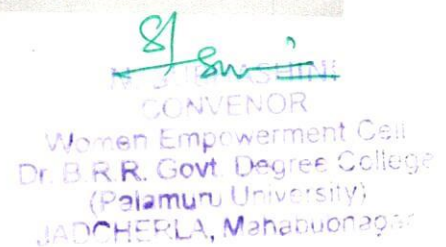 CONVENOR
Women Empowerment Cell
Dr. B.R.R. Govt. Degree College
(Palamuru University)
JADCHERLA, Mahabubnagar